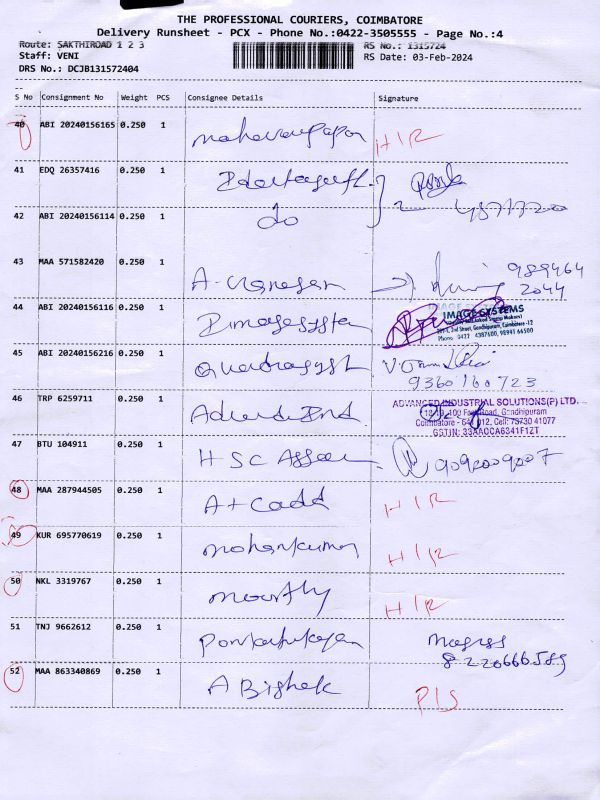 THE PROFESSIONAL COURIERS, COIMBATORE
Delivery Runsheet - PCX - Phone No.:0422-3505555 - Page No.:4
Route: SAKTHIROAD 1 2 3 RS No.: 1315724
Staff: VENI RS Date: 03-Feb-2024
DRS No.: DCJB131572404
S No Consignment No Weight PCS Consignee Details Signature
40 ABI 20240156165 0.250 1 H/R
41 EDQ 26357416 0.250 1
42 ABI 20240156114 0.250 1 do
43 MAA 571582420 0.250 1 989464
2044
44 ABI 20240156116 0.250 1 IMAGE SYSTEMS
45 ABI 20240156216 0.250 1
9360160723
46 TRP 6259711 0.250 1 ADVANCED INDUSTRIAL SOLUTIONS(P) LTD.
Gandhipuram
Coimbatore - 641 012, Cell: 73730 41077
GSTIN: 33AAOCA6341F1ZT
47 BTU 104911 0.250 1 HSC 9092009007
48 MAA 287944505 0.250 1 A+Cadd H/R
49 KUR 695770619 0.250 1 mohankumar H/R
50 NKL 3319767 0.250 1 moorthy H/R
51 TNJ 9662612 0.250 1
8220666589
52 MAA 863340869 0.250 1 A Bishek P/S